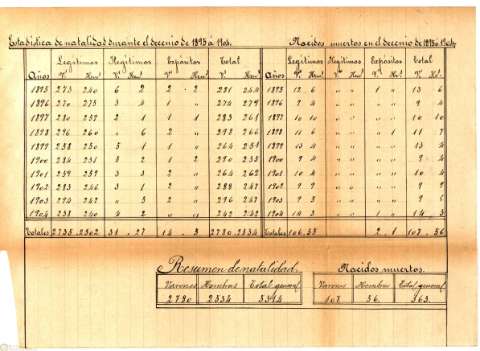 Estadística de natalidad durante el decenio de 1895 á 1904. Nacidos muertos en el decenio de 1895 á 1904
Legítimos Ilegítimos Expósitos Total Legítimos Ilegítimos Expósitos Total
Años V. Hem. V. Hem. V. Hem. V. Hem. Años V. Hem. V. Hem. V. Hem. V. Hem.
1895 273 240 6 2 2 2 281 244 1895 12 6 " " 1 " 13 6
1896 270 275 3 4 1 " 274 279 1896 9 4 " " " " 9 4
1897 280 257 2 1 1 283 261 1897 10 10 " " " " 10 10
1898 296 260 " 6 2 " 298 266 1898 11 6 " " " 1 11 7
1899 258 250 5 1 1 " 264 251 1899 13 4 " " " " 13 4
1900 284 231 2 1 2 290 235 1900 9 4 " " " " 9 4
1901 259 3 3 2 " 264 262 1901 10 4 " " " " 10 4
1902 283 246 3 1 2 " 288 247 1902 9 9 " " " " 9 9
1903 294 " 3 2 " 296 1903 9 " " " " 9
1904 238 240 4 2 " " 242 242 1904 14 3 " " 1 " 14 3
Totales 2735 2502 31 27 14 2780 2534 Totales 106 55 2 1 107 56
Resumen de natalidad. Nacidos muertos.
Varones Hembras Total general Varones Hembras Total general
2780 2534 5314 107 56 163